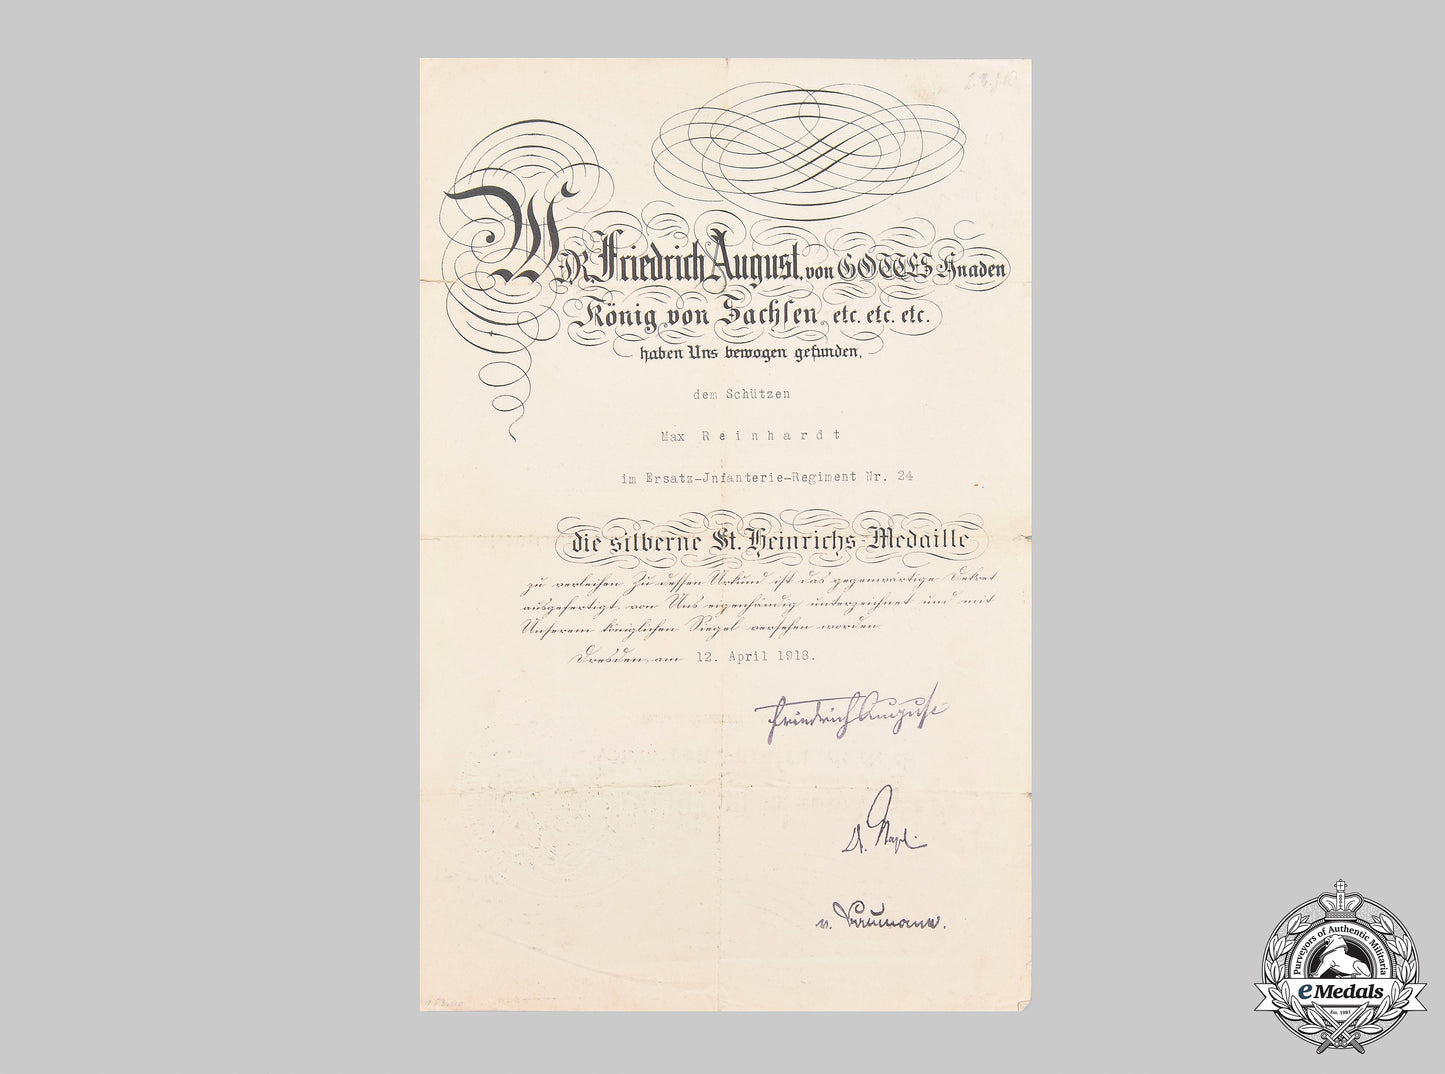 WIR Friedrich August, von GOTTES Gnaden
König von Sachsen, etc. etc. etc.
haben Uns bewogen gefunden,
dem Schützen
Max Reinhardt
im Ersatz-Jnfanterie-Regiment Nr. 24
die silberne St. Heinrichs-Medaille
zu verleihen. Zu dessen Urkund ist das gegenwärtige Dekret
ausgefertigt, von Uns eigenhändig unterzeichnet und mit
Unserem königlichen Siegel versehen worden
Dresden, am 12. April 1918.
Friedrich August
Purveyors of Authentic Militaria
eMedals
Est. 1981